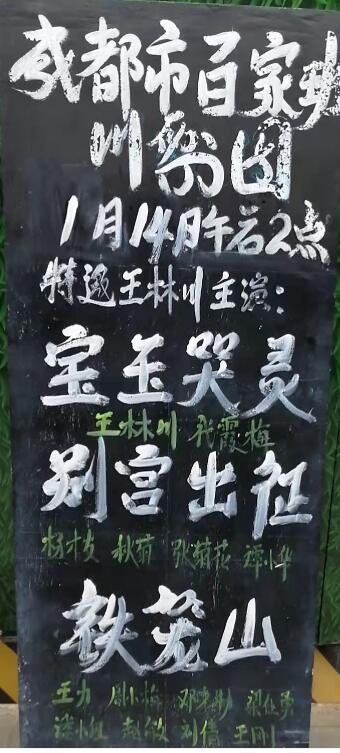 成都市百家班
川剧团
1月14日午后2点
特邀王林川主演:
宝玉哭灵
王林川 代霞梅
别宫出征
杨枝 秋菊 张菊花 谭小华
铁笼山
王力 周小梅
谭小红 赵敏 刘倩 王刚